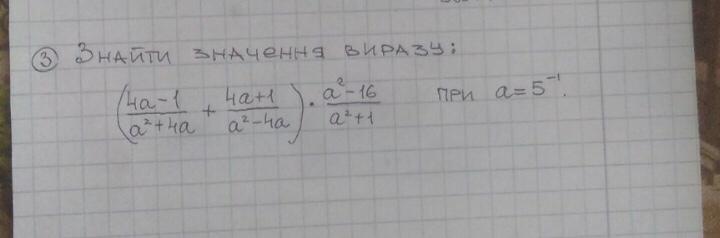 ③ Знайти значення виразу:
(4a-1/a²+4a + 4a+1/a²-4a) · a²-16/a²+1 при a=5⁻¹.